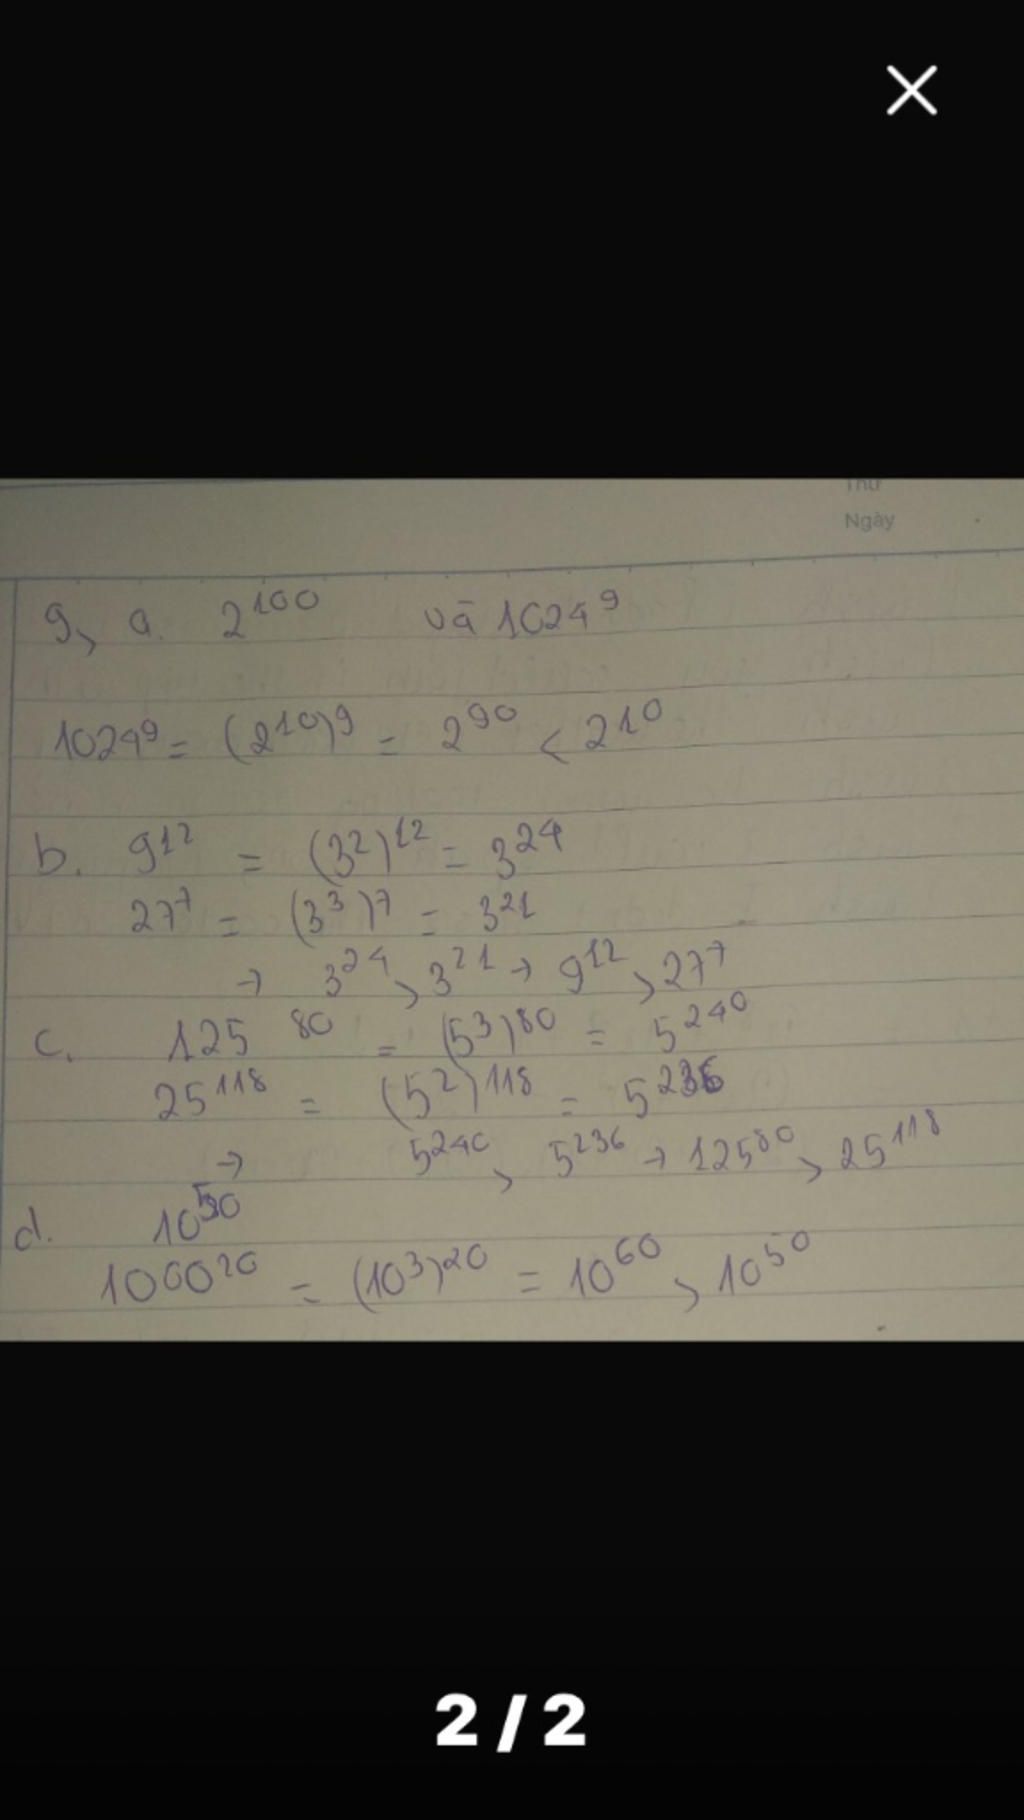 Thứ
Ngày
9, a. 2¹⁰⁰ và 1024⁹
1024⁹ = (2¹⁰)⁹ = 2⁹⁰ < 2¹⁰
b. 9¹² = (3²)¹² = 3²⁴
27⁷ = (3³)⁷ = 3²¹
→ 3²⁴ > 3²¹ → 9¹² > 27⁷
c. 125⁸⁰ = (5³)⁸⁰ = 5²⁴⁰
25¹¹⁸ = (5²)¹¹⁸ = 5²³⁶
→ 5²⁴⁰ > 5²³⁶ → 125⁸⁰ > 25¹¹⁸
d. 10⁵⁰
1000²⁰ = (10³)²⁰ = 10⁶⁰ > 10⁵⁰
2/2